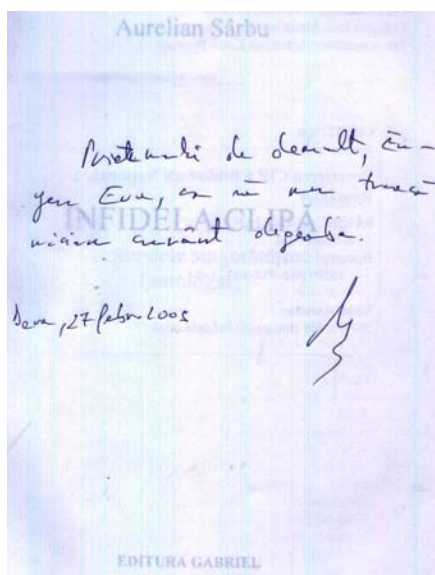 Aurelian Sârbu
Prietenului de demult, Eu-
gen Evu, ca să nu treacă
niciun cuvânt degeaba.
INFIDELA CLIPĂ
Deva, 27 febr 2005
EDITURA GABRIEL